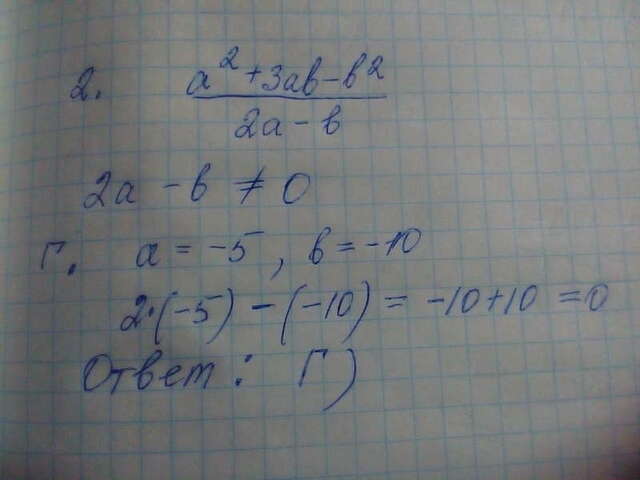 2. a² + 3ab - b²
2a - b
2a - b ≠ 0
Г. a = -5, b = -10
2·(-5) - (-10) = -10 + 10 = 0
Ответ: Г)